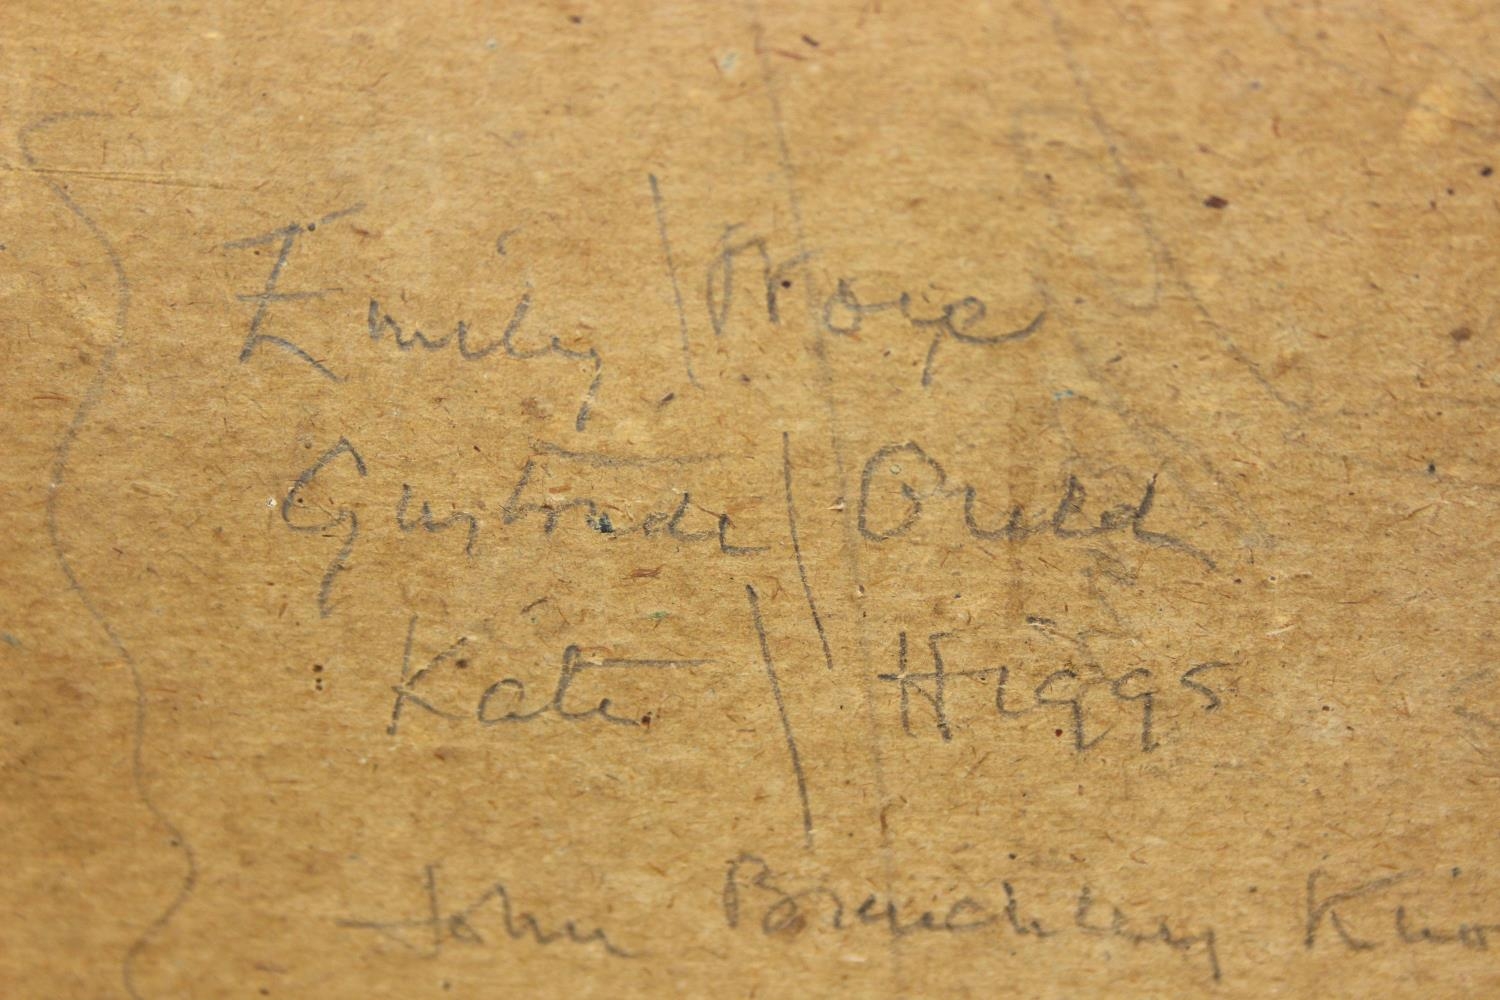 Emily | Hope
Gertrude | Ould
Kate | Higgs
John Brenchley